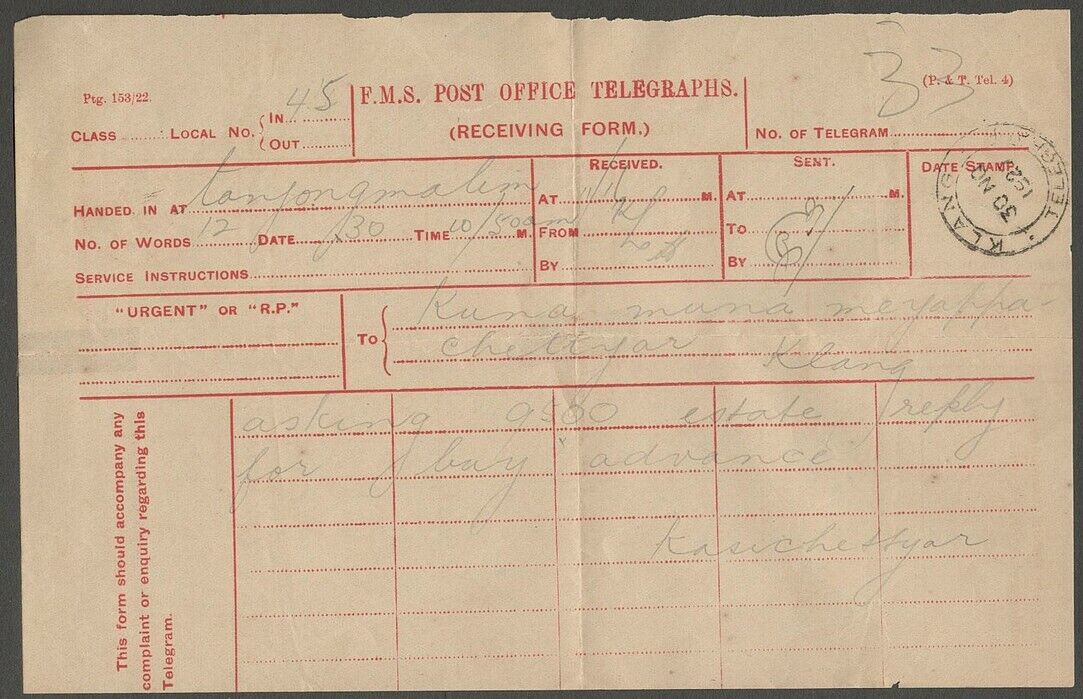 Ptg. 153/22.
(P. & T. Tel. 4)
33
F.M.S. POST OFFICE TELEGRAPHS.
(RECEIVING FORM.)
CLASS LOCAL No. { IN 45
OUT
No. OF TELEGRAM
HANDED IN AT tanjongmalim
No. OF WORDS 12 DATE 30 TIME 10/50am M.
SERVICE INSTRUCTIONS
RECEIVED.
AT M.
FROM
BY
SENT.
AT M.
TO
BY
DATE STAMP
KLANG TELEGRAPHS
30 NO
"URGENT" OR "R.P."
TO { Kuna muna meyappa-
chettyar Klang
asking 9500 estate reply
for buy advance
Kasichettyar
This form should accompany any
complaint or enquiry regarding this
Telegram.